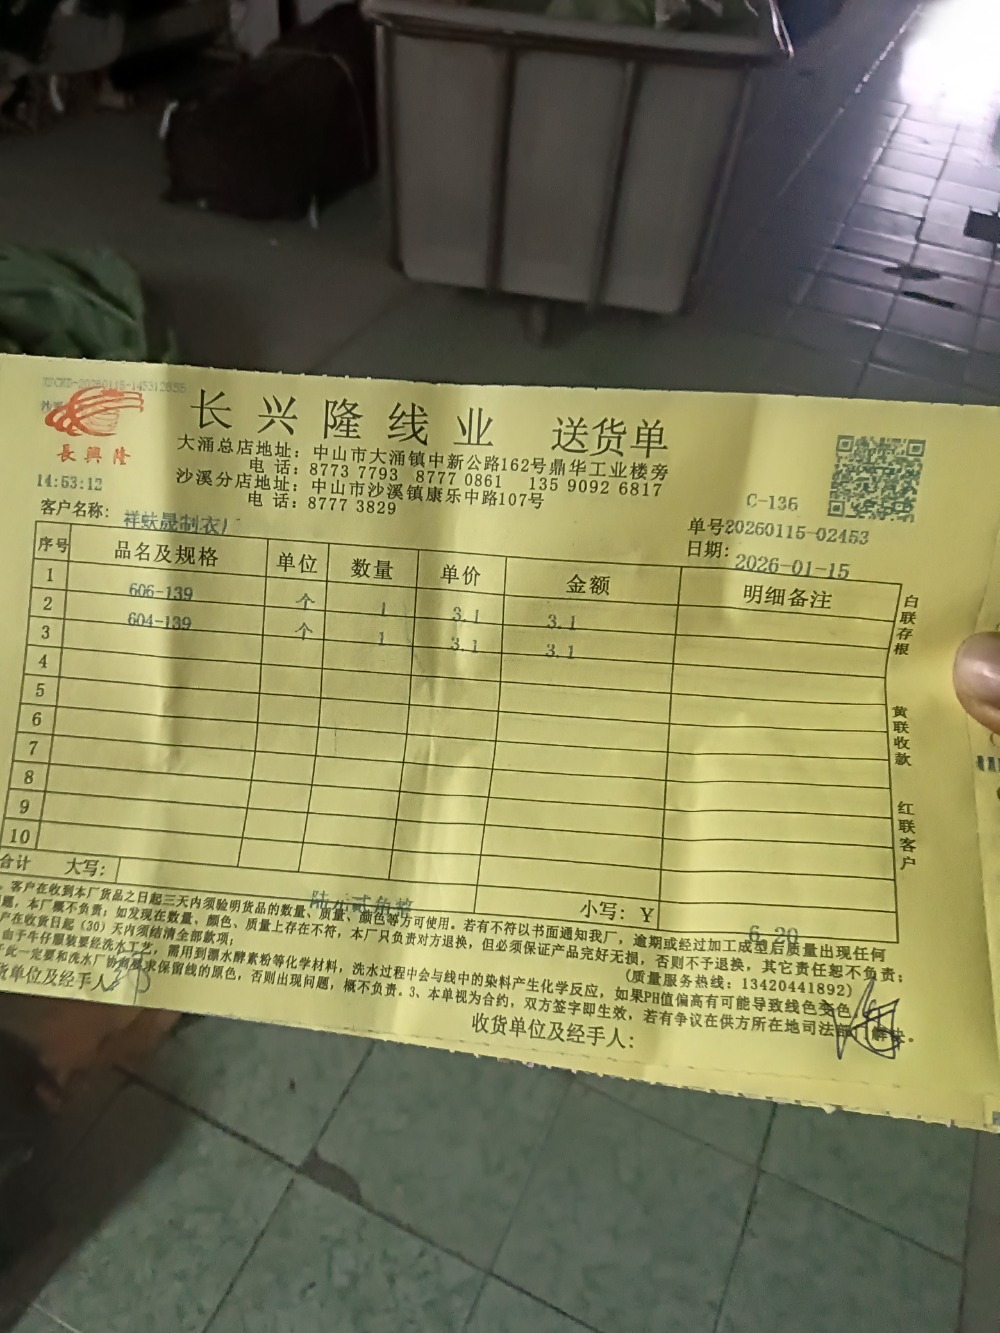 长兴隆线业 送货单
長興隆
大涌总店地址：中山市大涌镇中新公路162号鼎华工业楼旁
电 话：8773 7793 8777 0861 135 9092 6817
沙溪分店地址：中山市沙溪镇康乐中路107号
电 话：8777 3829
14:53:12
C-136
客户名称： 祥 晟制衣厂
单号20260115-02453
日期：2026-01-15
序号 品名及规格 单位 数量 单价 金额 明细备注
1 606-139 个 1 3.1 3.1
2 604-139 个 1 3.1 3.1
3
4
5
6
7
8
9
10
合计 大写： 陆元贰角整 小写：￥ 6.20
白联存根 黄联收款 红联客户
客户在收到本厂货品之日起三天内须验明货品的数量、质量、颜色等方可使用。若有不符以书面通知我厂，逾期或经过加工成型后质量出现任何
题，本厂概不负责；如发现在数量、颜色、质量上存在不符，本厂只负责对方退换，但必须保证产品完好无损，否则不予退换，其它责任恕不负责；
户在收货日起（30）天内须结清全部款项； （质量服务热线：13420441892）
由于牛仔服装要经洗水工艺，需用到漂水酵素粉等化学材料，洗水过程中会与线中的染料产生化学反应，如果PH值偏高有可能导致线色变色，
于此一定要和洗水厂协商要求保留线的原色，否则出现问题，概不负责。3、本单视为合约，双方签字即生效，若有争议在供方所在地司法部门解决。
货单位及经手人
收货单位及经手人：